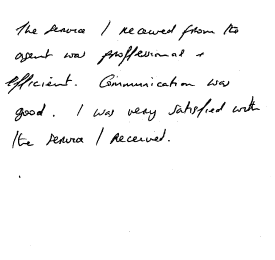 The service I received from the
agent was proffessional +
efficient. Communication was
good. I was very satisfied with
the service I received.